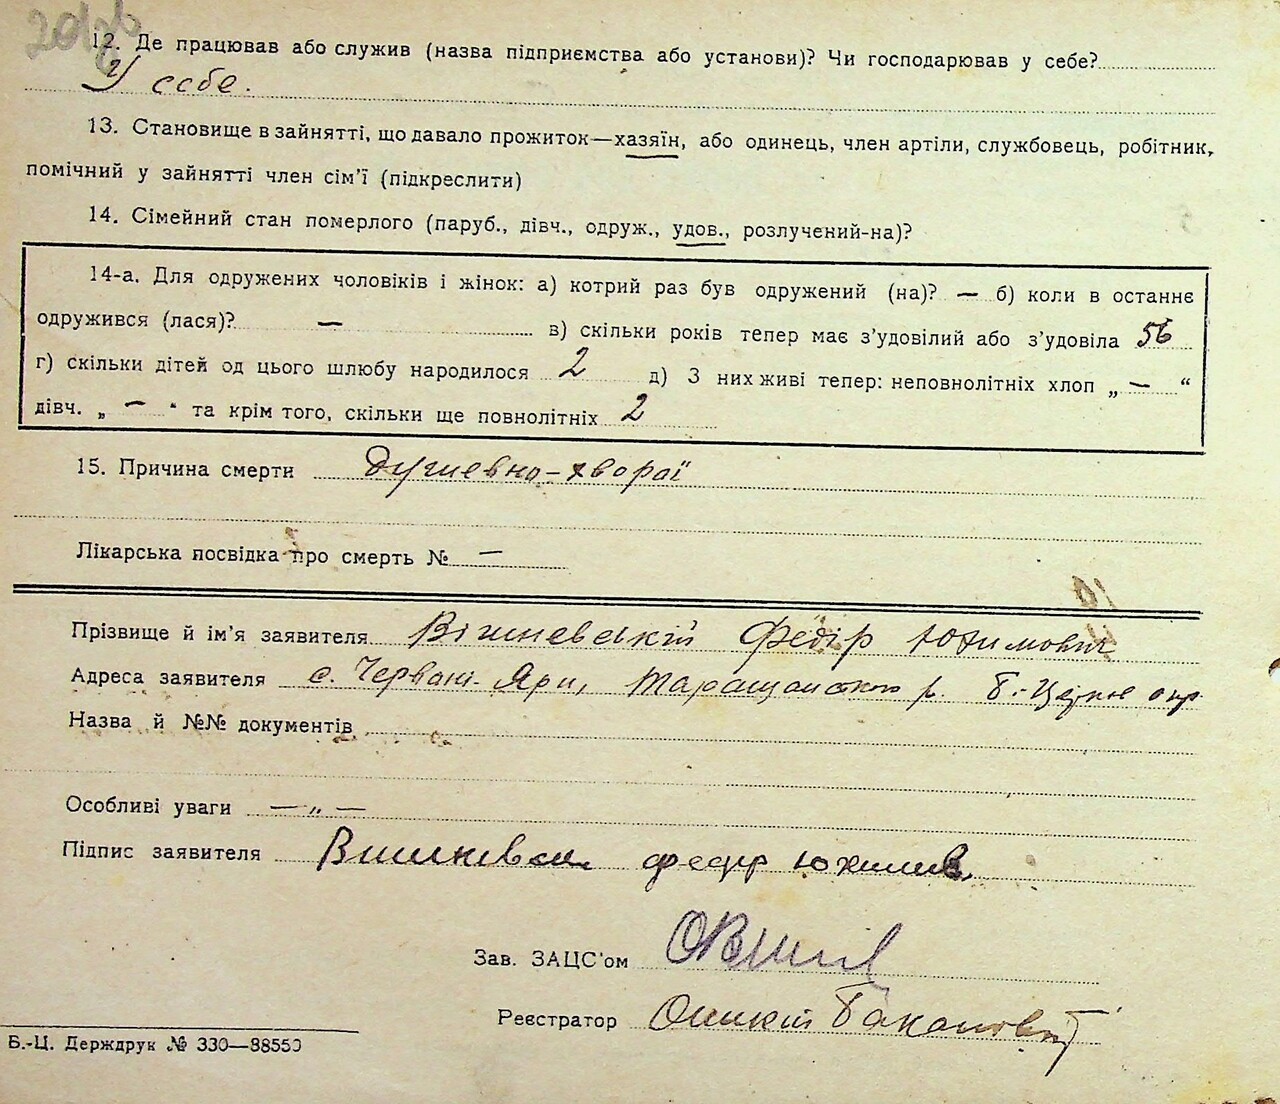 12. Де працював або служив (назва підприємства або установи)? Чи господарював у себе?
У себе.
13. Становище в зайнятті, що давало прожиток—хазяїн, або одинець, член артіли, службовець, робітник,
помічний у зайнятті член сім'ї (підкреслити)
14. Сімейний стан померлого (паруб., дівч., одруж., удов., розлучений-на)?
14-а. Для одружених чоловіків і жінок: а) котрий раз був одружений (на)? — б) коли в останнє
одружився (лася)? — в) скільки років тепер має з'удовілий або з'удовіла 56
г) скільки дітей од цього шлюбу народилося 2 д) З них живі тепер: неповнолітніх хлоп „ — “
дівч. „ — “ та крім того, скільки ще повнолітніх 2
15. Причина смерти Душевно-хворої
Лікарська посвідка про смерть № —
Прізвище й ім'я заявителя Вішневський Федір Юхимович
Адреса заявителя с. Червоні-Яри, Таращанського р. Б.-Церкв окр.
Назва й №№ документів
Особливі уваги — „ —
Підпис заявителя Федір Юхимов.
Зав. ЗАЦС'ом
Реєстратор
Б.-Ц. Держдрук № 330—88550